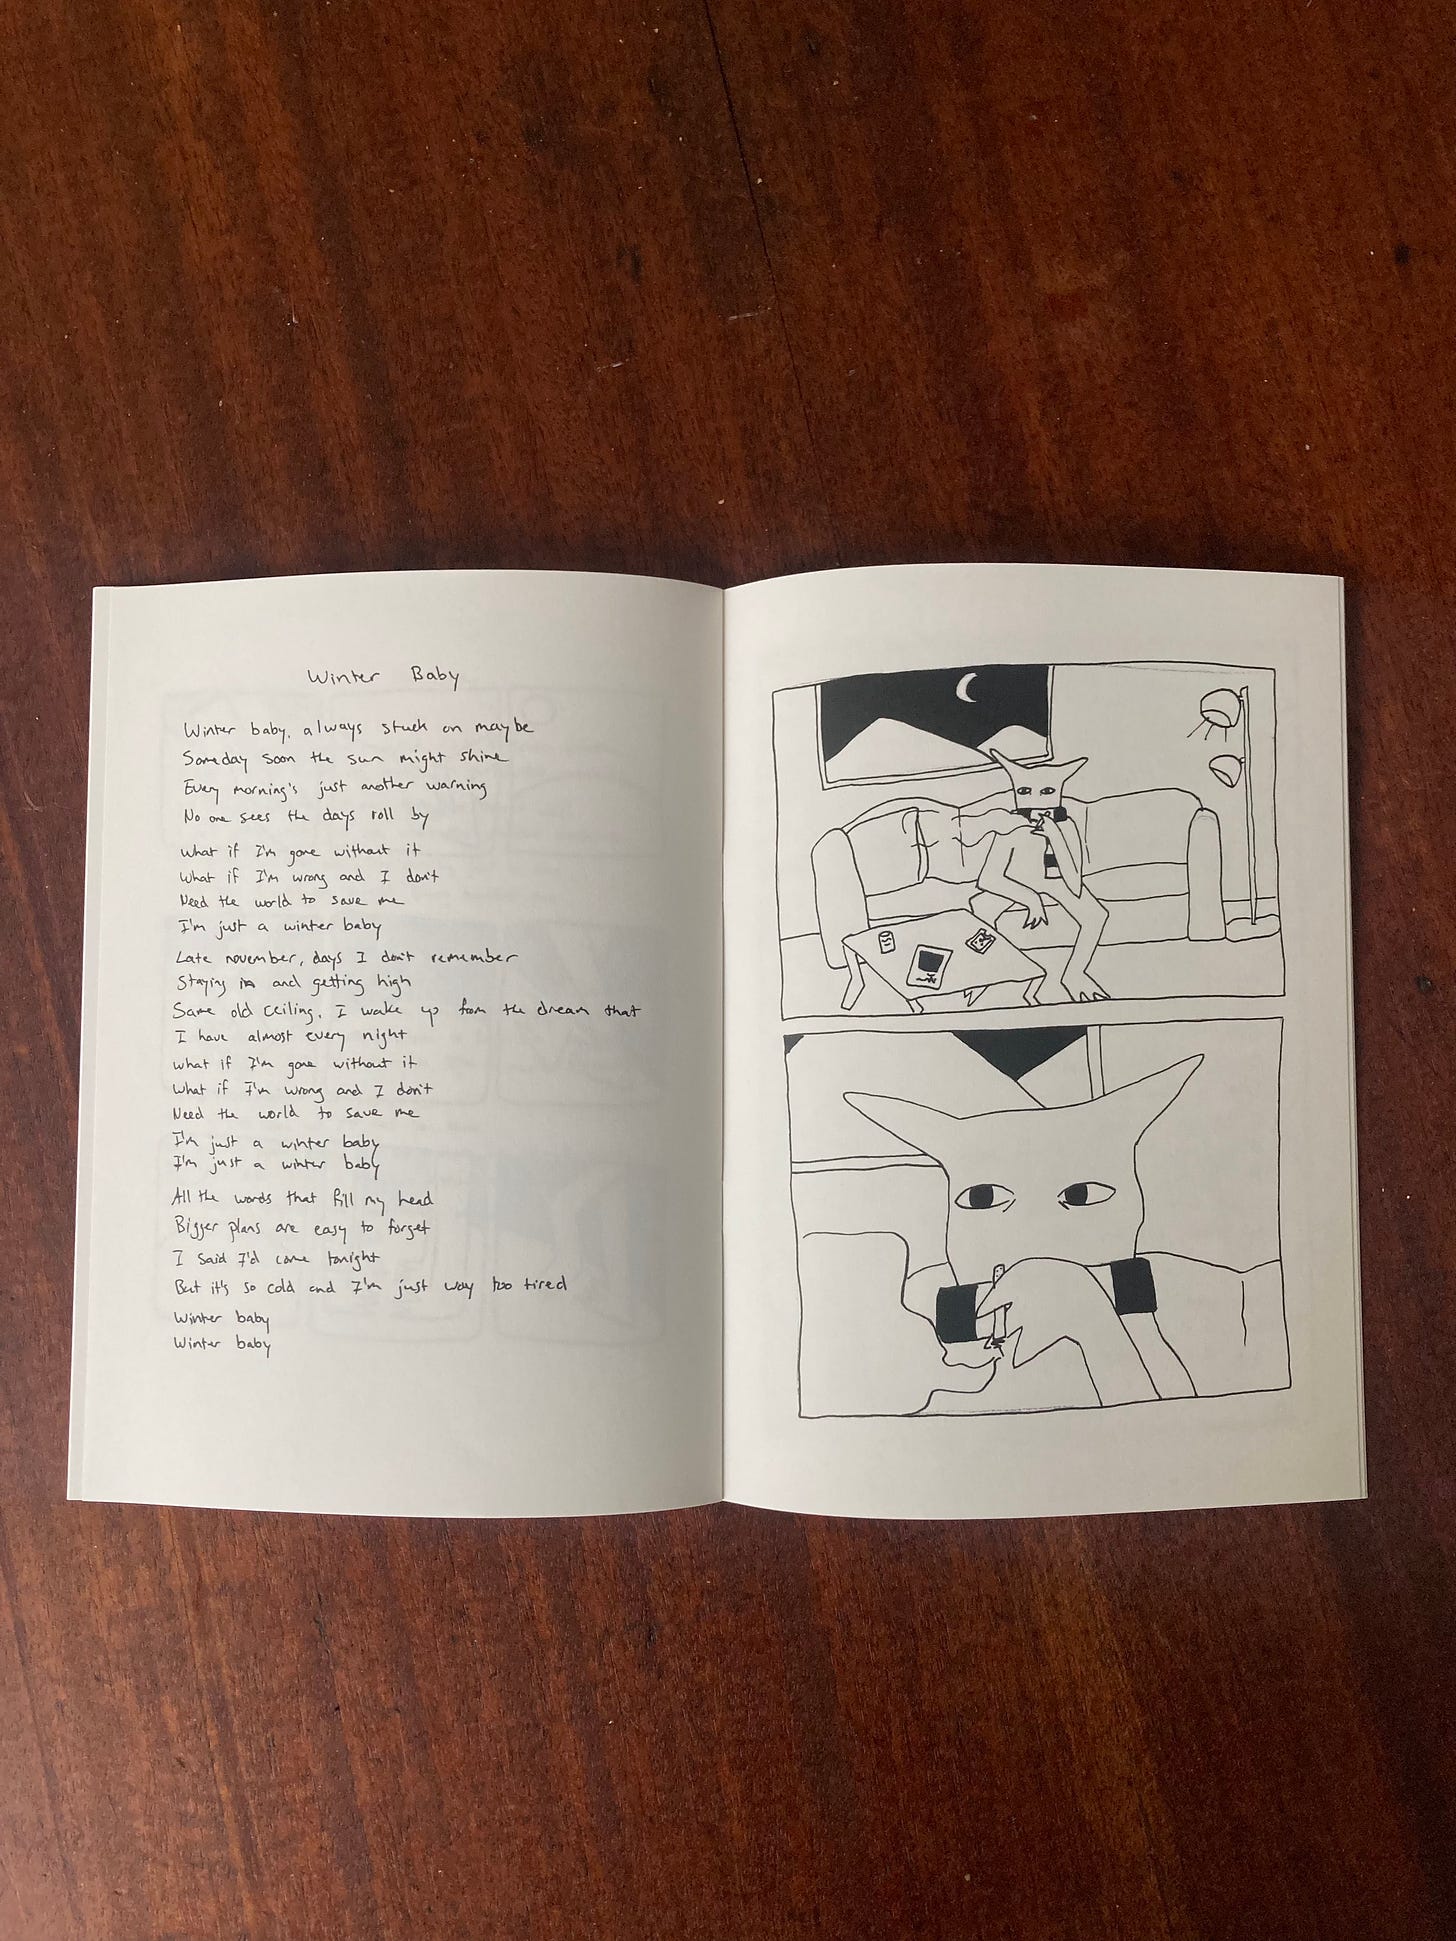 Winter Baby
Winter baby, always stuck on maybe
Someday soon the sun might shine
Every morning's just another warning
No one sees the days roll by
What if I'm gone without it
What if I'm wrong and I don't
Need the world to save me
I'm just a winter baby
Late november, days I don't remember
Staying in and getting high
Same old ceiling, I wake up from the dream that
I have almost every night
What if I'm gone without it
What if I'm wrong and I don't
Need the world to save me
I'm just a winter baby
I'm just a winter baby
All the words that fill my head
Bigger plans are easy to forget
I said I'd come tonight
But it's so cold and I'm just way too tired
Winter baby
Winter baby